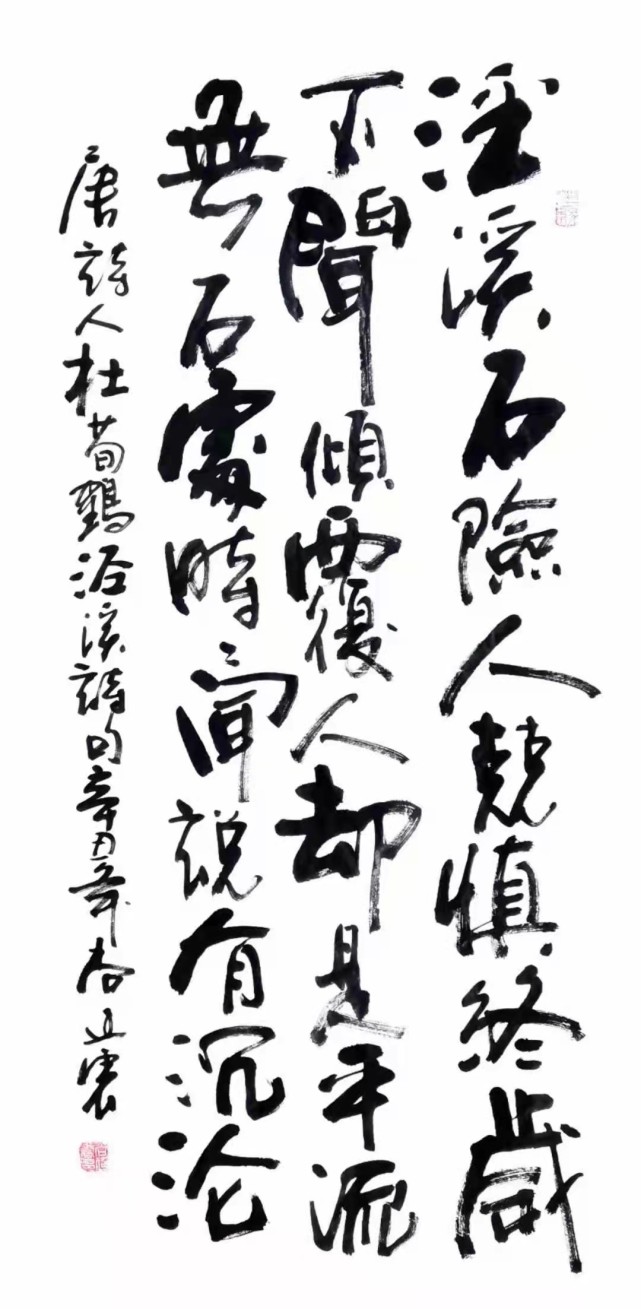 泾溪石險人兢慎終歲
不聞傾覆人却是平流
無石處時〻聞説有沉沦
唐詩人杜荀鶴泾溪詩句辛丑年